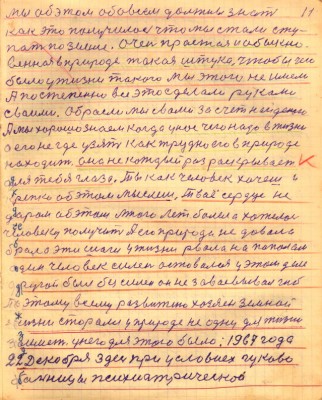 мы об этом обовсем должны знат 11
Как это получилос что мы стали сту-
пат по земле. Очен простая и обычно
венная в природе такая штука, чтобы эт
было у жизни такого мы этого не имели
А постепенно все это делали руками
своими. Обраем мы свами за счет найденого
А мы хорошо знаем когда у ког чего надо в жизни
а его негде узят как трудно его в природе
находит, оно не кождый раз раскрывает
для тебя глаза. Ты как человек хочеш и
крепко об этом мыслиш. Твое сердце не
даром об этом много лет болела хотелос
человеку получит А его природа не довала
брала эти шаги у жизни рвала на пополам
один человек силен оставался у этом деле
другой был бесилен он не завоевывал чтоб
поэтому всему развитию хозяен земной
жизни старался у природе не одну для жизни
у него для этого было; 1967 года
22 Декабря здес при условиях Чухово
балницы психиатрической